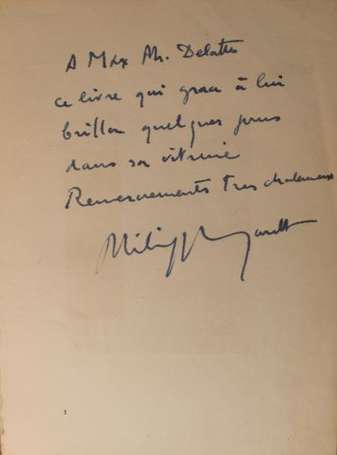 A Max Ph. Delatte
ce livre qui grace à lui
brilla quelques jours
dans sa vitrine
Remerciements Tres chaleureux
Philippe
1